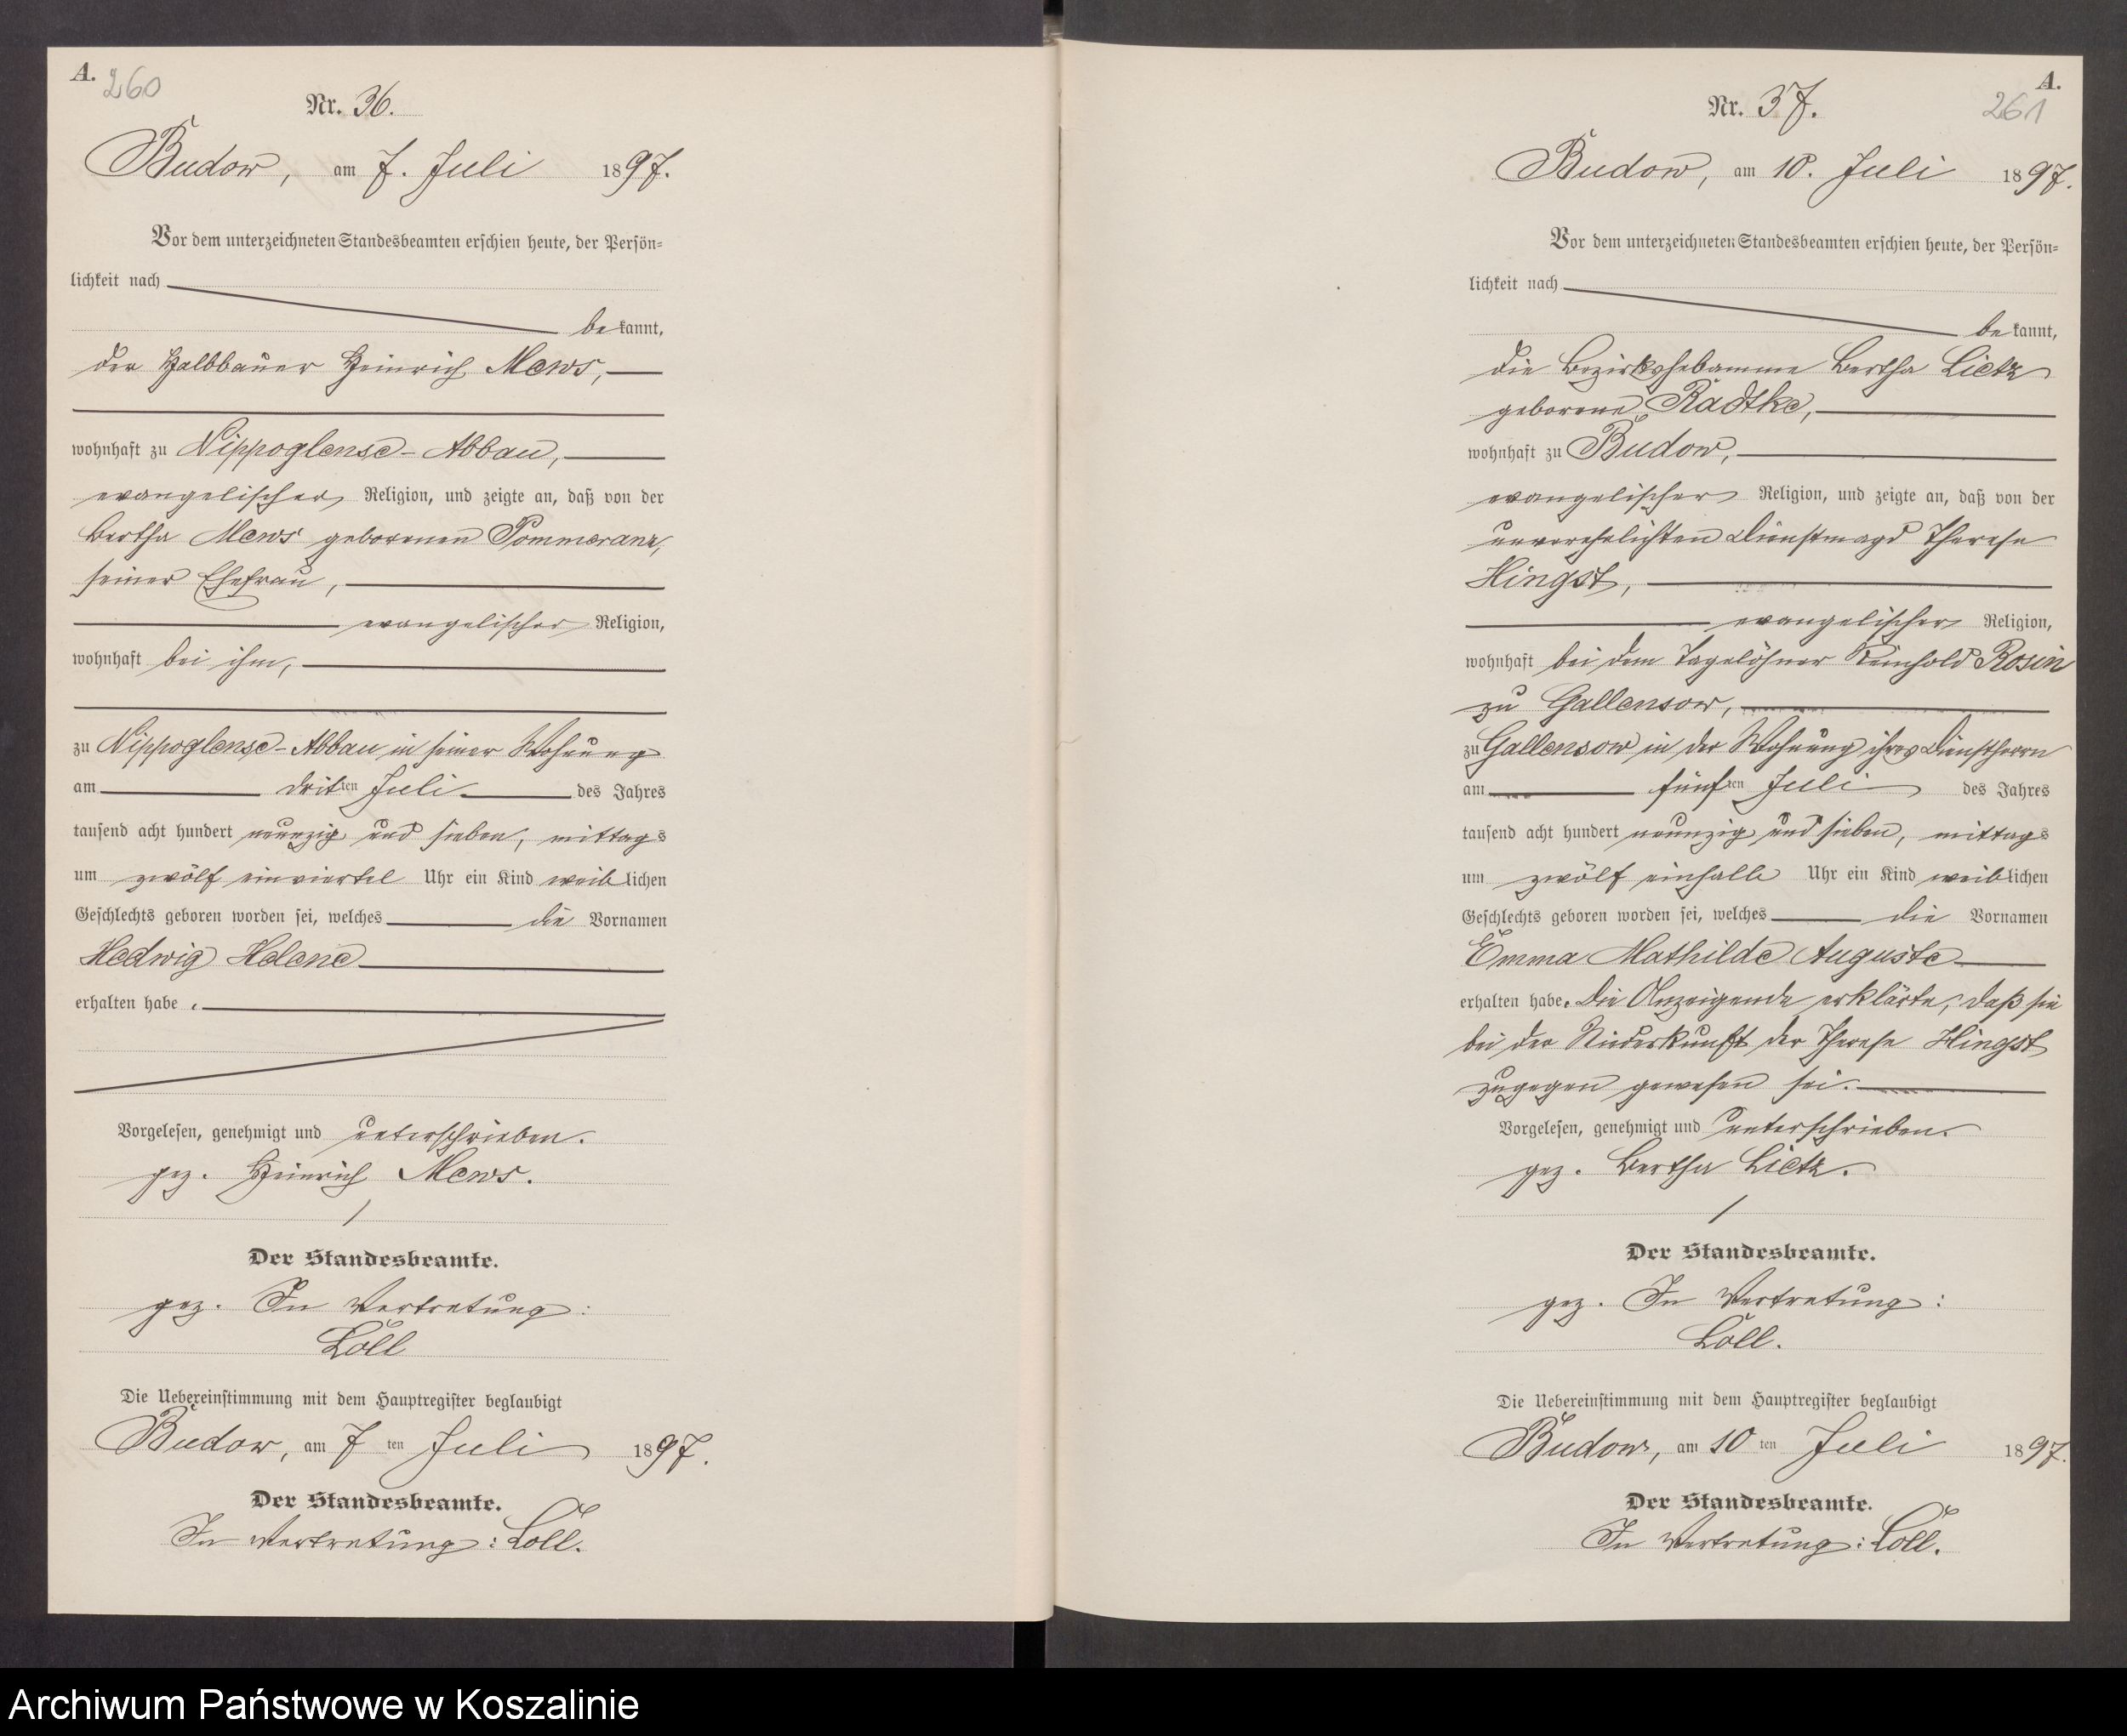 A.
260
Nr. 36.
Budow, am 7. Juli 1897.
Vor dem unterzeichneten Standesbeamten erschien heute, der Persön-
lichkeit nach
bekannt,
der Halbbauer Heinrich Mews,
wohnhaft zu Nippoglense-Abbau,
evangelischer Religion, und zeigte an, daß von der
Bertha Mews geborenen Pommeranz,
seiner Ehefrau,
evangelischer Religion,
wohnhaft bei ihm,
zu Nippoglense-Abbau in seiner Wohnung
am dritten Juli des Jahres
tausend acht hundert neunzig und sieben, mittags
um zwölf einviertel Uhr ein Kind weiblichen
Geschlechts geboren worden sei, welches die Vornamen
Hedwig Helene
erhalten habe.
Vorgelesen, genehmigt und unterschrieben.
gez. Heinrich Mews.
Der Standesbeamte.
gez. In Vertretung:
Löll
Die Uebereinstimmung mit dem Hauptregister beglaubigt
Budow, am 7ten Juli 1897.
Der Standesbeamte.
In Vertretung: Löll.
A.
261
Nr. 37.
Budow, am 10. Juli 1897.
Vor dem unterzeichneten Standesbeamten erschien heute, der Persön-
lichkeit nach
bekannt,
die Bezirkshebamme Bertha Lietz
geborene Radtke,
wohnhaft zu Budow,
evangelischer Religion, und zeigte an, daß von der
unverehelichten Dienstmagd Therese
Hingst,
evangelischer Religion,
wohnhaft bei dem Tagelöhner Reinhold Rosin
zu Gallensow,
zu Gallensow in der Wohnung ihres Dienstherrn
am fünften Juli des Jahres
tausend acht hundert neunzig und sieben, mittags
um zwölf einhalb Uhr ein Kind weiblichen
Geschlechts geboren worden sei, welches die Vornamen
Emma Mathilde Auguste
erhalten habe. Die Anzeigende erklärte, daß sie
bei der Niederkunft der Therese Hingst
zugegen gewesen sei.
Vorgelesen, genehmigt und unterschrieben.
gez. Bertha Lietz.
Der Standesbeamte.
gez. In Vertretung:
Löll.
Die Uebereinstimmung mit dem Hauptregister beglaubigt
Budow, am 10ten Juli 1897.
Der Standesbeamte.
In Vertretung: Löll.
Archiwum Państwowe w Koszalinie